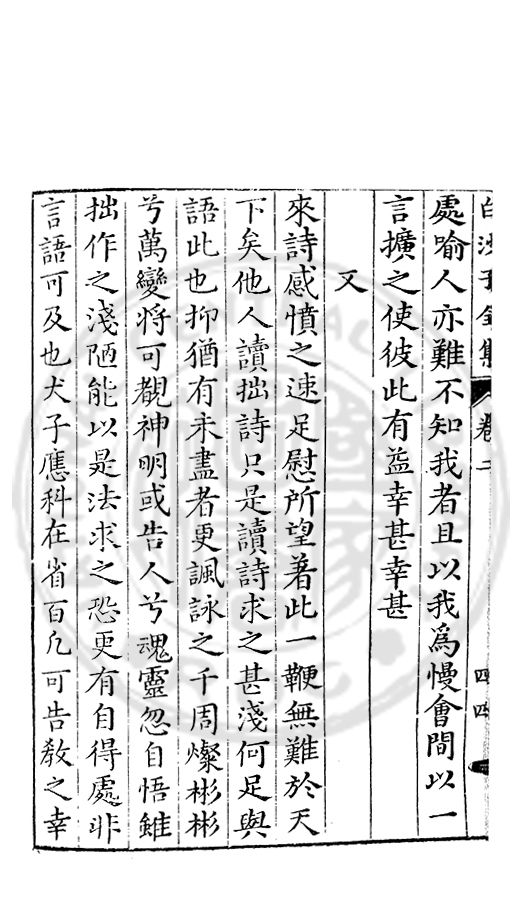 白沙子全集 卷二 四四
處喻人亦難不知我者且以我爲慢會間以一
言擴之使彼此有益幸甚幸甚
又
來詩感憤之速足慰所望著此一鞭無難於天
下矣他人讀拙詩只是讀詩求之甚淺何足與
語此也抑猶有未盡者更諷詠之千周燦彬彬
兮萬變將可覩神明或告人兮魂靈忽自悟雖
拙作之淺陋能以是法求之恐更有自得處非
言語可及也犬子應科在省百凡可告教之幸